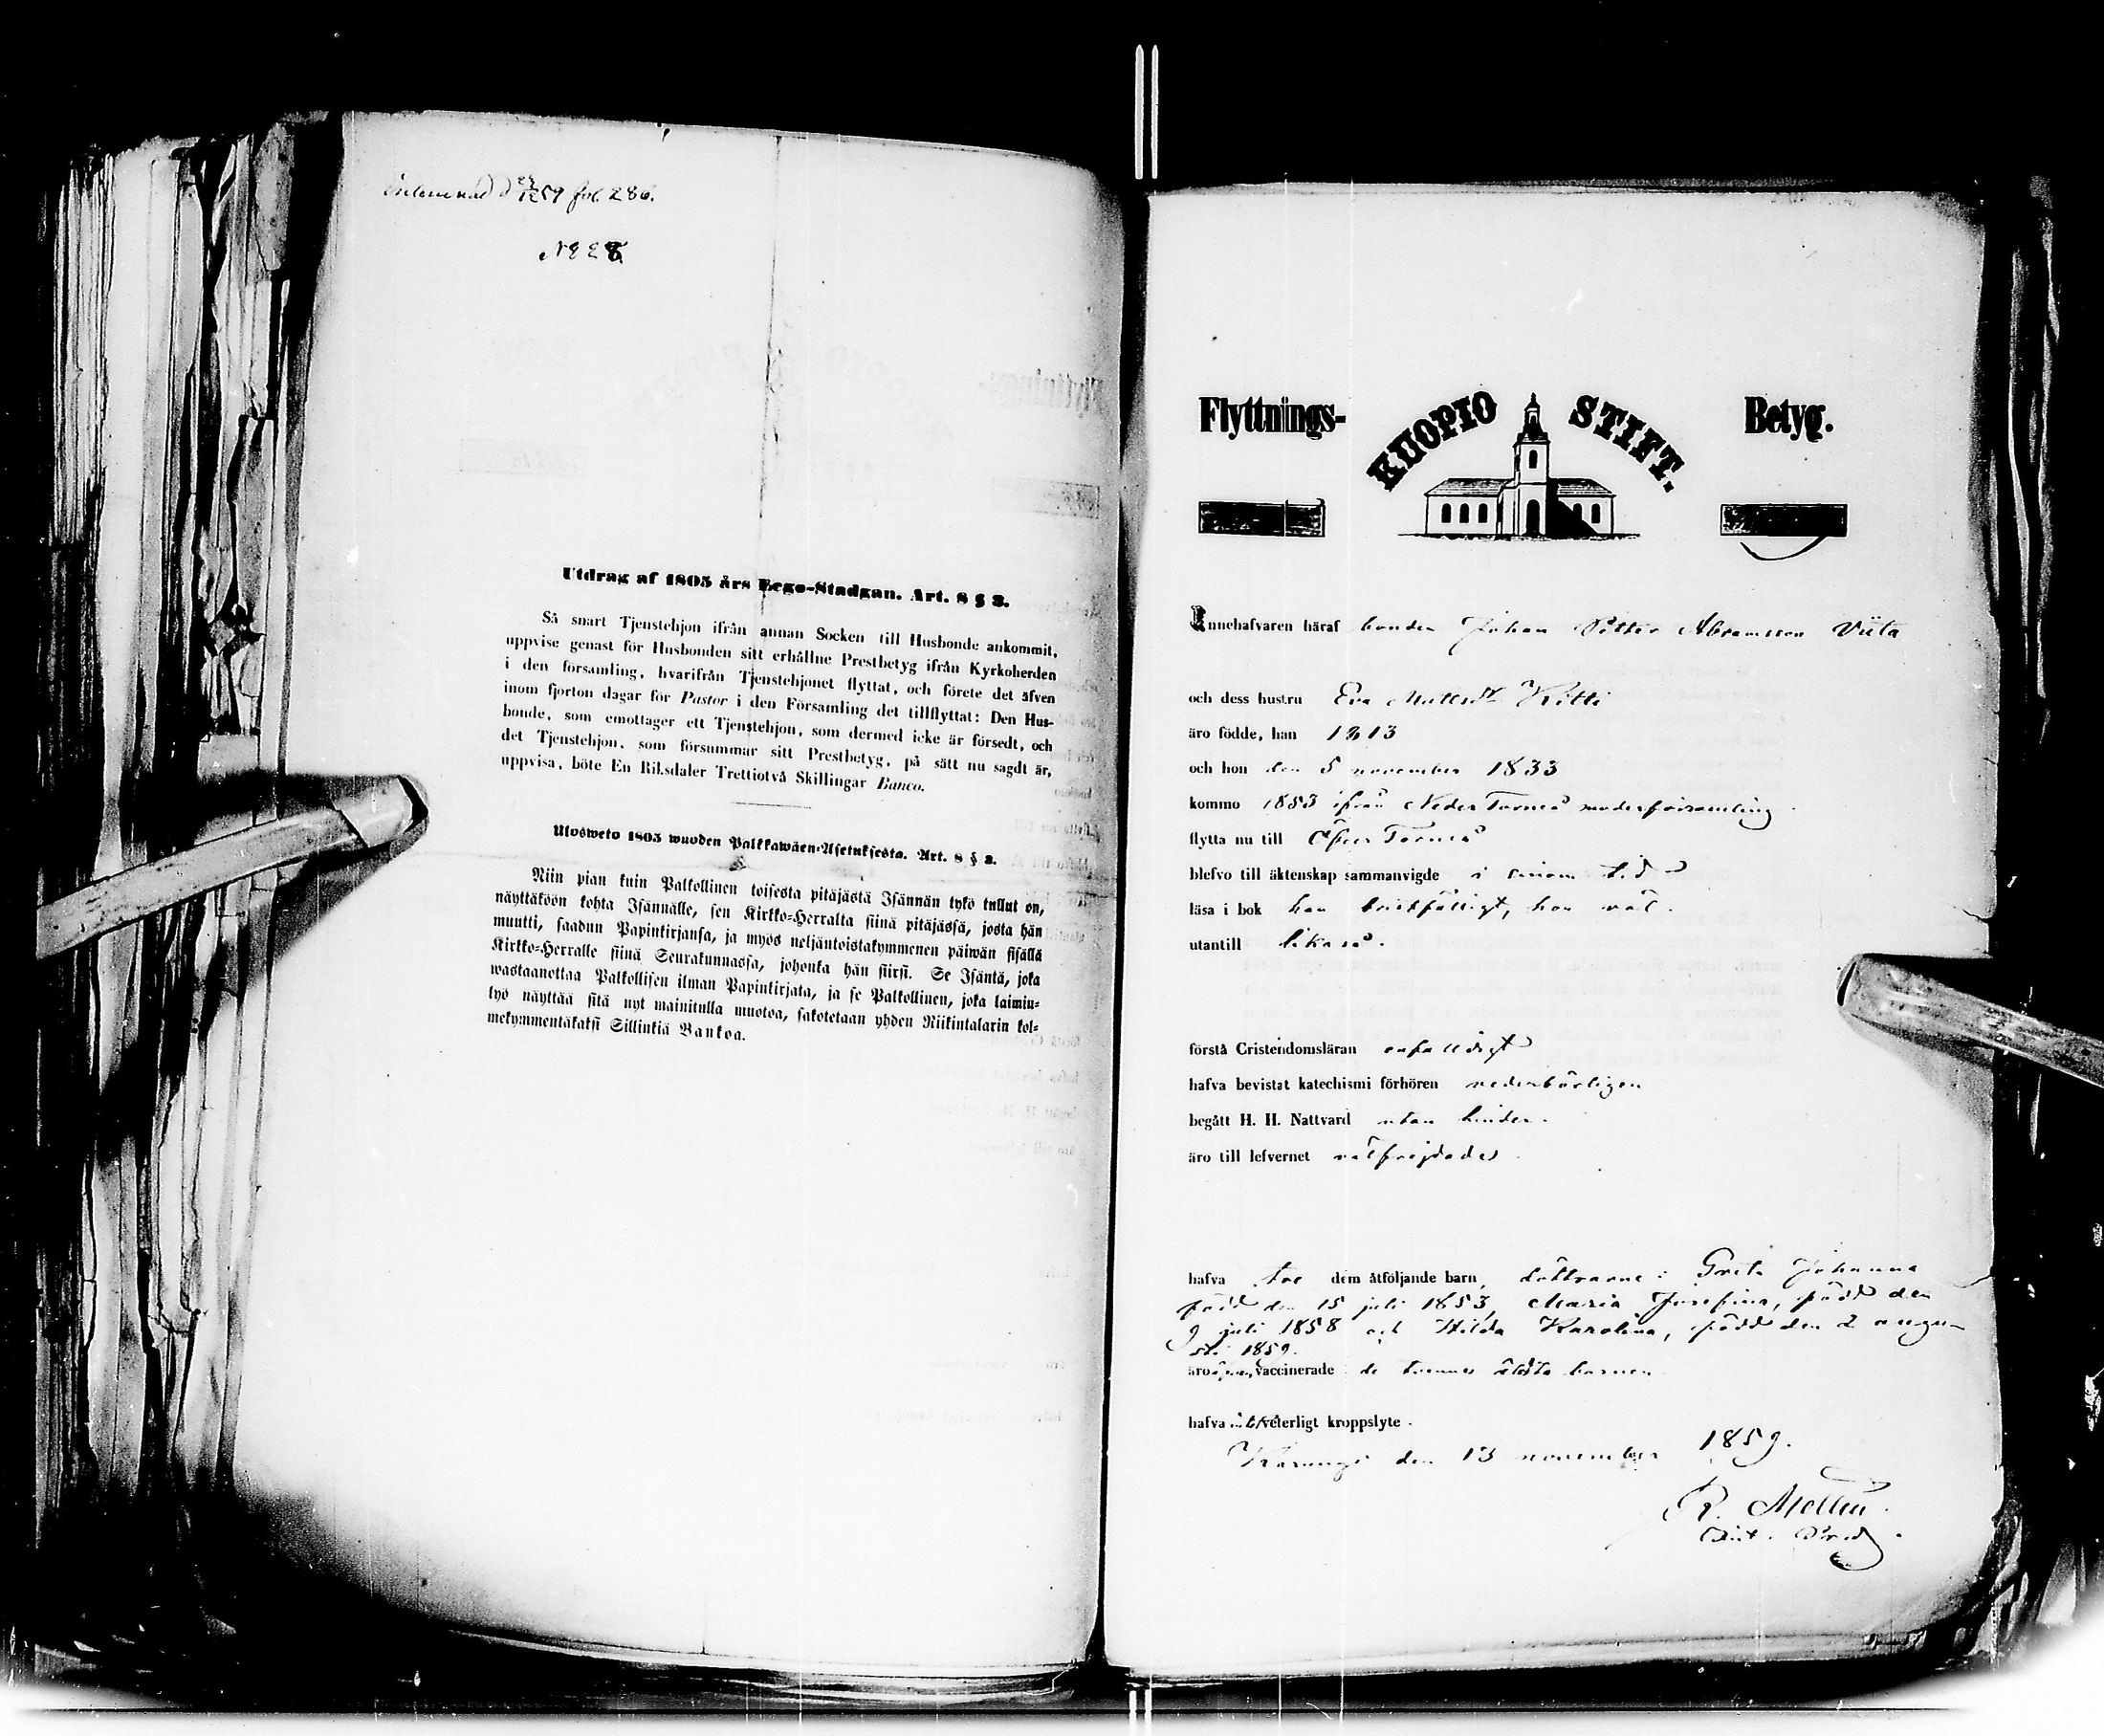 Inlemnad d 23/12 59 fol. 286.
No 28.
Utdrag af 1805 års Lego-Stadgan. Art. 8 § 3.
Så snart Tjenstehjon ifrån annan Socken till Husbonde ankommit,
uppvise genast för Husbonden sitt erhållne Prestbetyg ifrån Kyrkoherden
i den församling, hvarifrån Tjenstehjonet flyttat, och förete det äfven
inom fjorton dagar för Pastor i den Församling det tillflyttat: Den Hus-
bonde, som emottager ett Tjenstehjon, som dermed icke är försedt, och
det Tjenstehjon, som försummar sitt Prestbetyg, på sätt nu sagdt är,
uppvisa, böte En Riksdaler Trettiotvå Skillingar Banco.
Ulosweto 1805 wuoden Palkkawäen-Asetuksesta. Art. 8 § 3.
Niin pian kuin Palkollinen toisesta pitäjästä Isännän tykö tullut on,
näyttäköön kohta Isännälle, sen Kirkko-Herralta siinä pitäjässä, josta hän
muutti, saadun Papinkirjansa, ja myös neljäntoistakymmenen päiwän sisällä
Kirkko-Herralle siinä Seurakunnassa, johonka hän siirsi. Se Isäntä, joka
wastaanottaa Palkollisen ilman Papinkirjata, ja se Palkollinen, joka laimin-
lyö näyttää sitä nyt mainitulla muotoa, sakotetaan yhden Riikintalarin kol-
mekymmentäkaksi Sillinkiä Bankoa.
Flyttnings- KUOPIO STIFT. Betyg.
Innehafvaren häraf bonden Johan Petter Abramsson Viita
och dess hustru Eva Mattsdr Kitti
äro födde, han 1813
och hon den 5 november 1833
kommo 1853 ifrån Neder Torneå moderförsamling
flytta nu till Öfver Torneå
blefvo till äktenskap sammanvigde i sinom tid
läsa i bok han bristfälligt, hon väl.
utantill likaså.
förstå Cristendomsläran enfalldigt
hafva bevistat katechismi förhören vederbörligen
begått H. H. Nattvard utan hinder.
äro till lefvernet välfrejdade
hafva tre dem åtföljande barn, döttrarne: Greta Johanna
född den 15 juli 1853, Maria Josefina, född den
9 juli 1858 och Hilda Karolina, född den 2 augu-
sti 1859.
äro vaccinerade de tvenne äldsta barnen
hafva veterligt kroppslyte.
Karungi den 13 november 1859.
R. Mellin.
Pred.